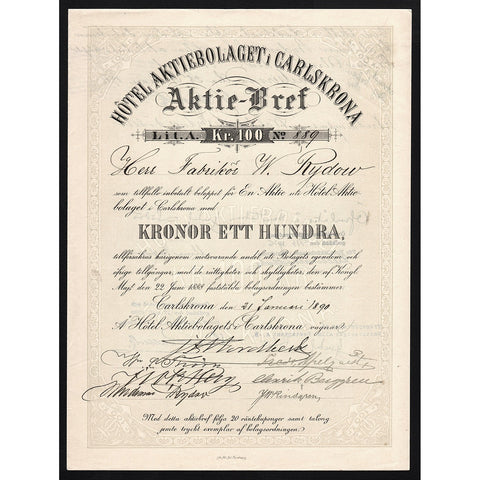 HÔTEL AKTIEBOLAGET i CARLSKRONA
Aktie-Bref
Litt. A. Kr. 100 No 889
Herr Fabrikör W. Rydow
som tillfullo inbetalt beloppet för En Aktie uti Hôtel Aktie-
bolaget i Carlskrona med
KRONOR ETT HUNDRA,
tillförsäkras härigenom motsvarande andel uti Bolagets egendom och
öfrige tillgångar, med de rättigheter och skyldigheter, den af Kongl.
Majt den 22 Juni 1888 fastställda bolagsordningen bestämmer.
Carlskrona den 21 Januari 1890
Å Hôtel Aktiebolagets i Carlskrona vägnar
Waldemar Rydow Henrik Berggren
J.W. Lindgren
Med detta aktiebref följa 20 räntekuponger samt talong
jemte tryckt exemplar af bolagsordningen.